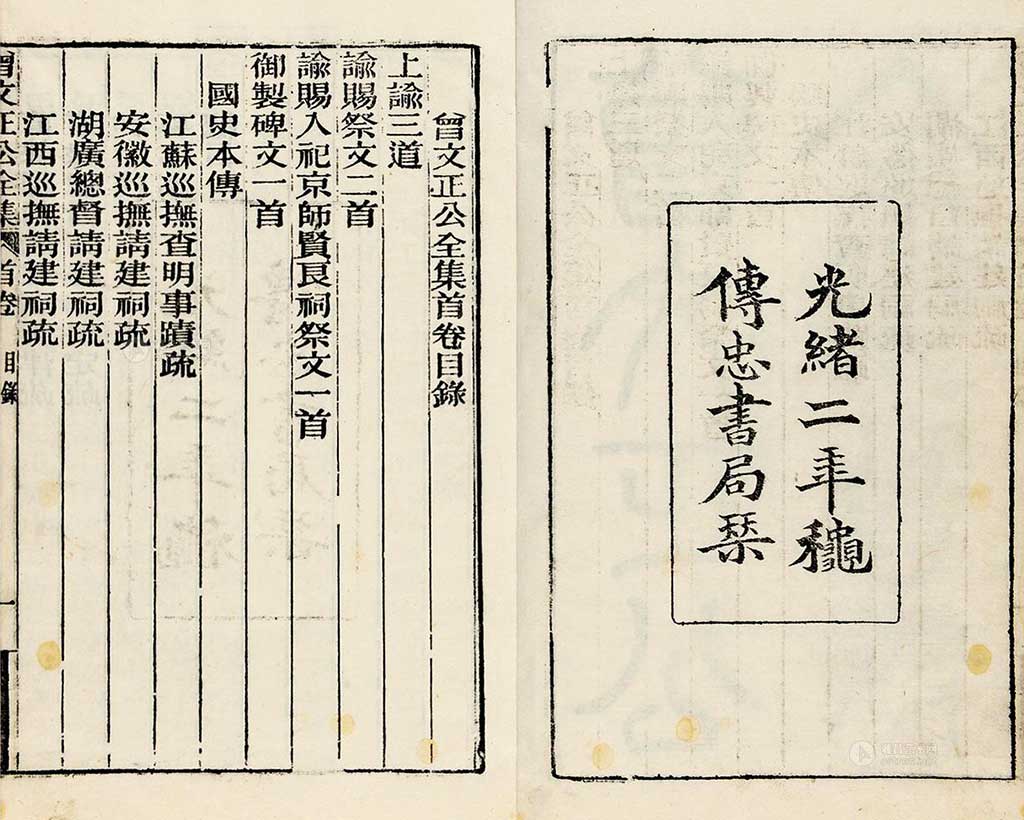 光緒二年䆋
傳忠書局栞
曾文正公全集首卷目錄
上諭三道
諭賜祭文二首
諭賜入祀京師賢良祠祭文一首
御製碑文一首
國史本傳
江蘇巡撫查明事蹟疏
安徽巡撫請建祠疏
湖廣總督請建祠疏
江西巡撫請建祠疏
曾文正公全集 首卷 目錄 一